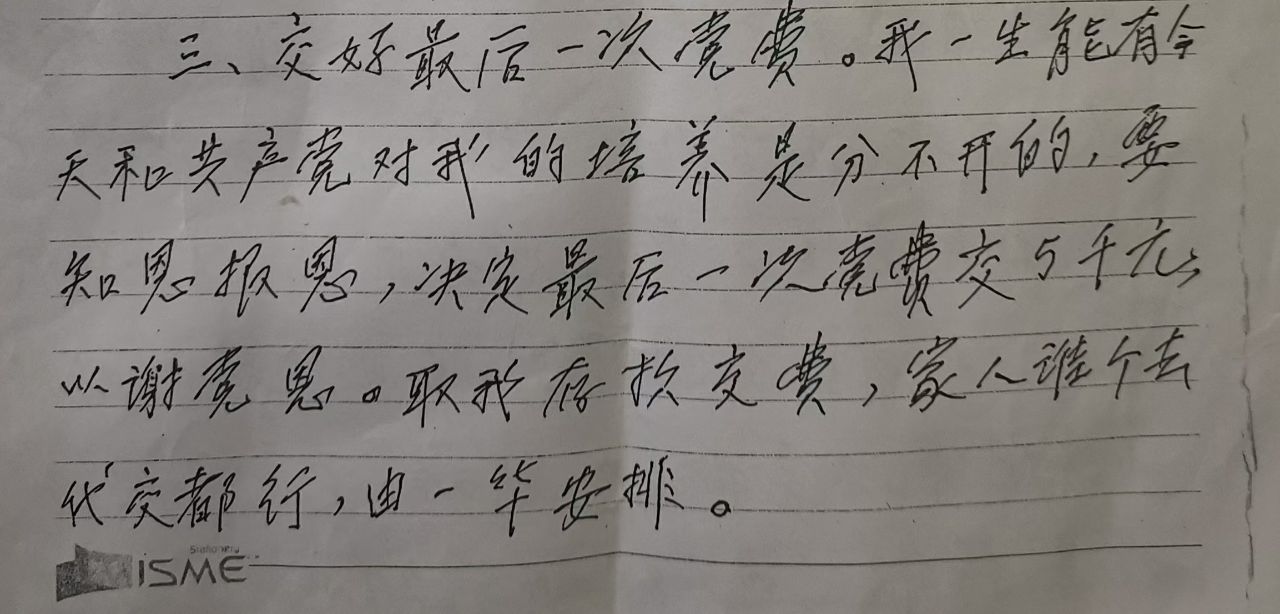 三、交好最后一次党费。我一生能有今
天和共产党对我的培养是分不开的,要
知恩报恩,决定最后一次党费交5千元,
以谢党恩。取我存款交费,家人谁个去
代交都行,由一华安排。
Stationery
iSME